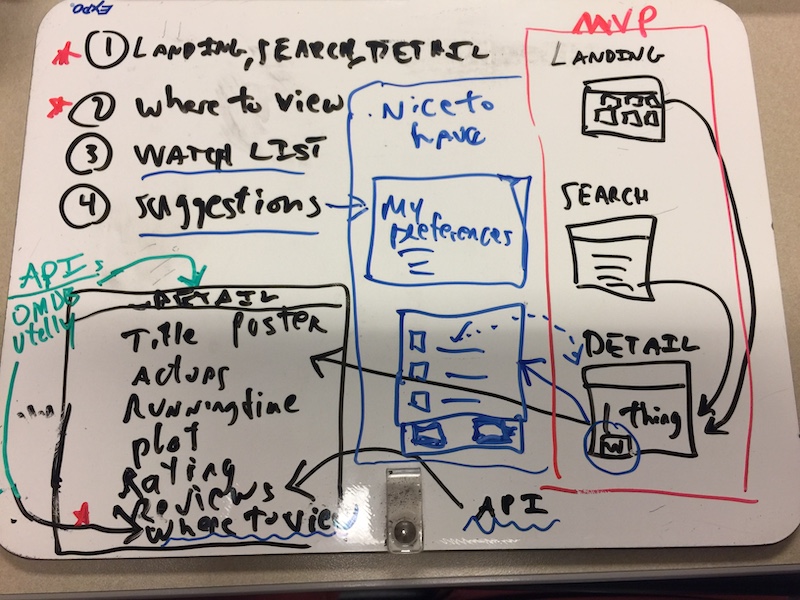 EXPO
① LANDING, SEARCH, DETAIL
② where to view
③ WATCH LIST
④ suggestions
Nice to
have
My
preferences
MVP
LANDING
SEARCH
DETAIL
1 thing
W
APIs
OMDB
utelly
DETAIL
Title poster
Actors
Runningtime
plot
Rating
Reviews
where to view
API